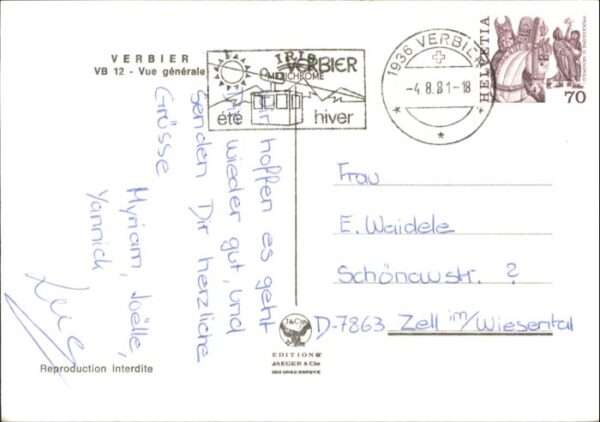 VERBIER
VB 12 - Vue générale
IRIS
MEXICHROME
VERBIER
été hiver
1936 VERBIER
-4.8.81-18
HELVETIA
70
Wir hoffen es geht
Dir wieder gut, und
senden Dir herzliche
Grüsse
Myriam, Joëlle,
Yannick
Luc
Frau
E. Waidele
Schönaustr. 2
D-7863 Zell im/Wiesental
J&Cie
EDITIONS
JAEGER & Cie
Reproduction Interdite